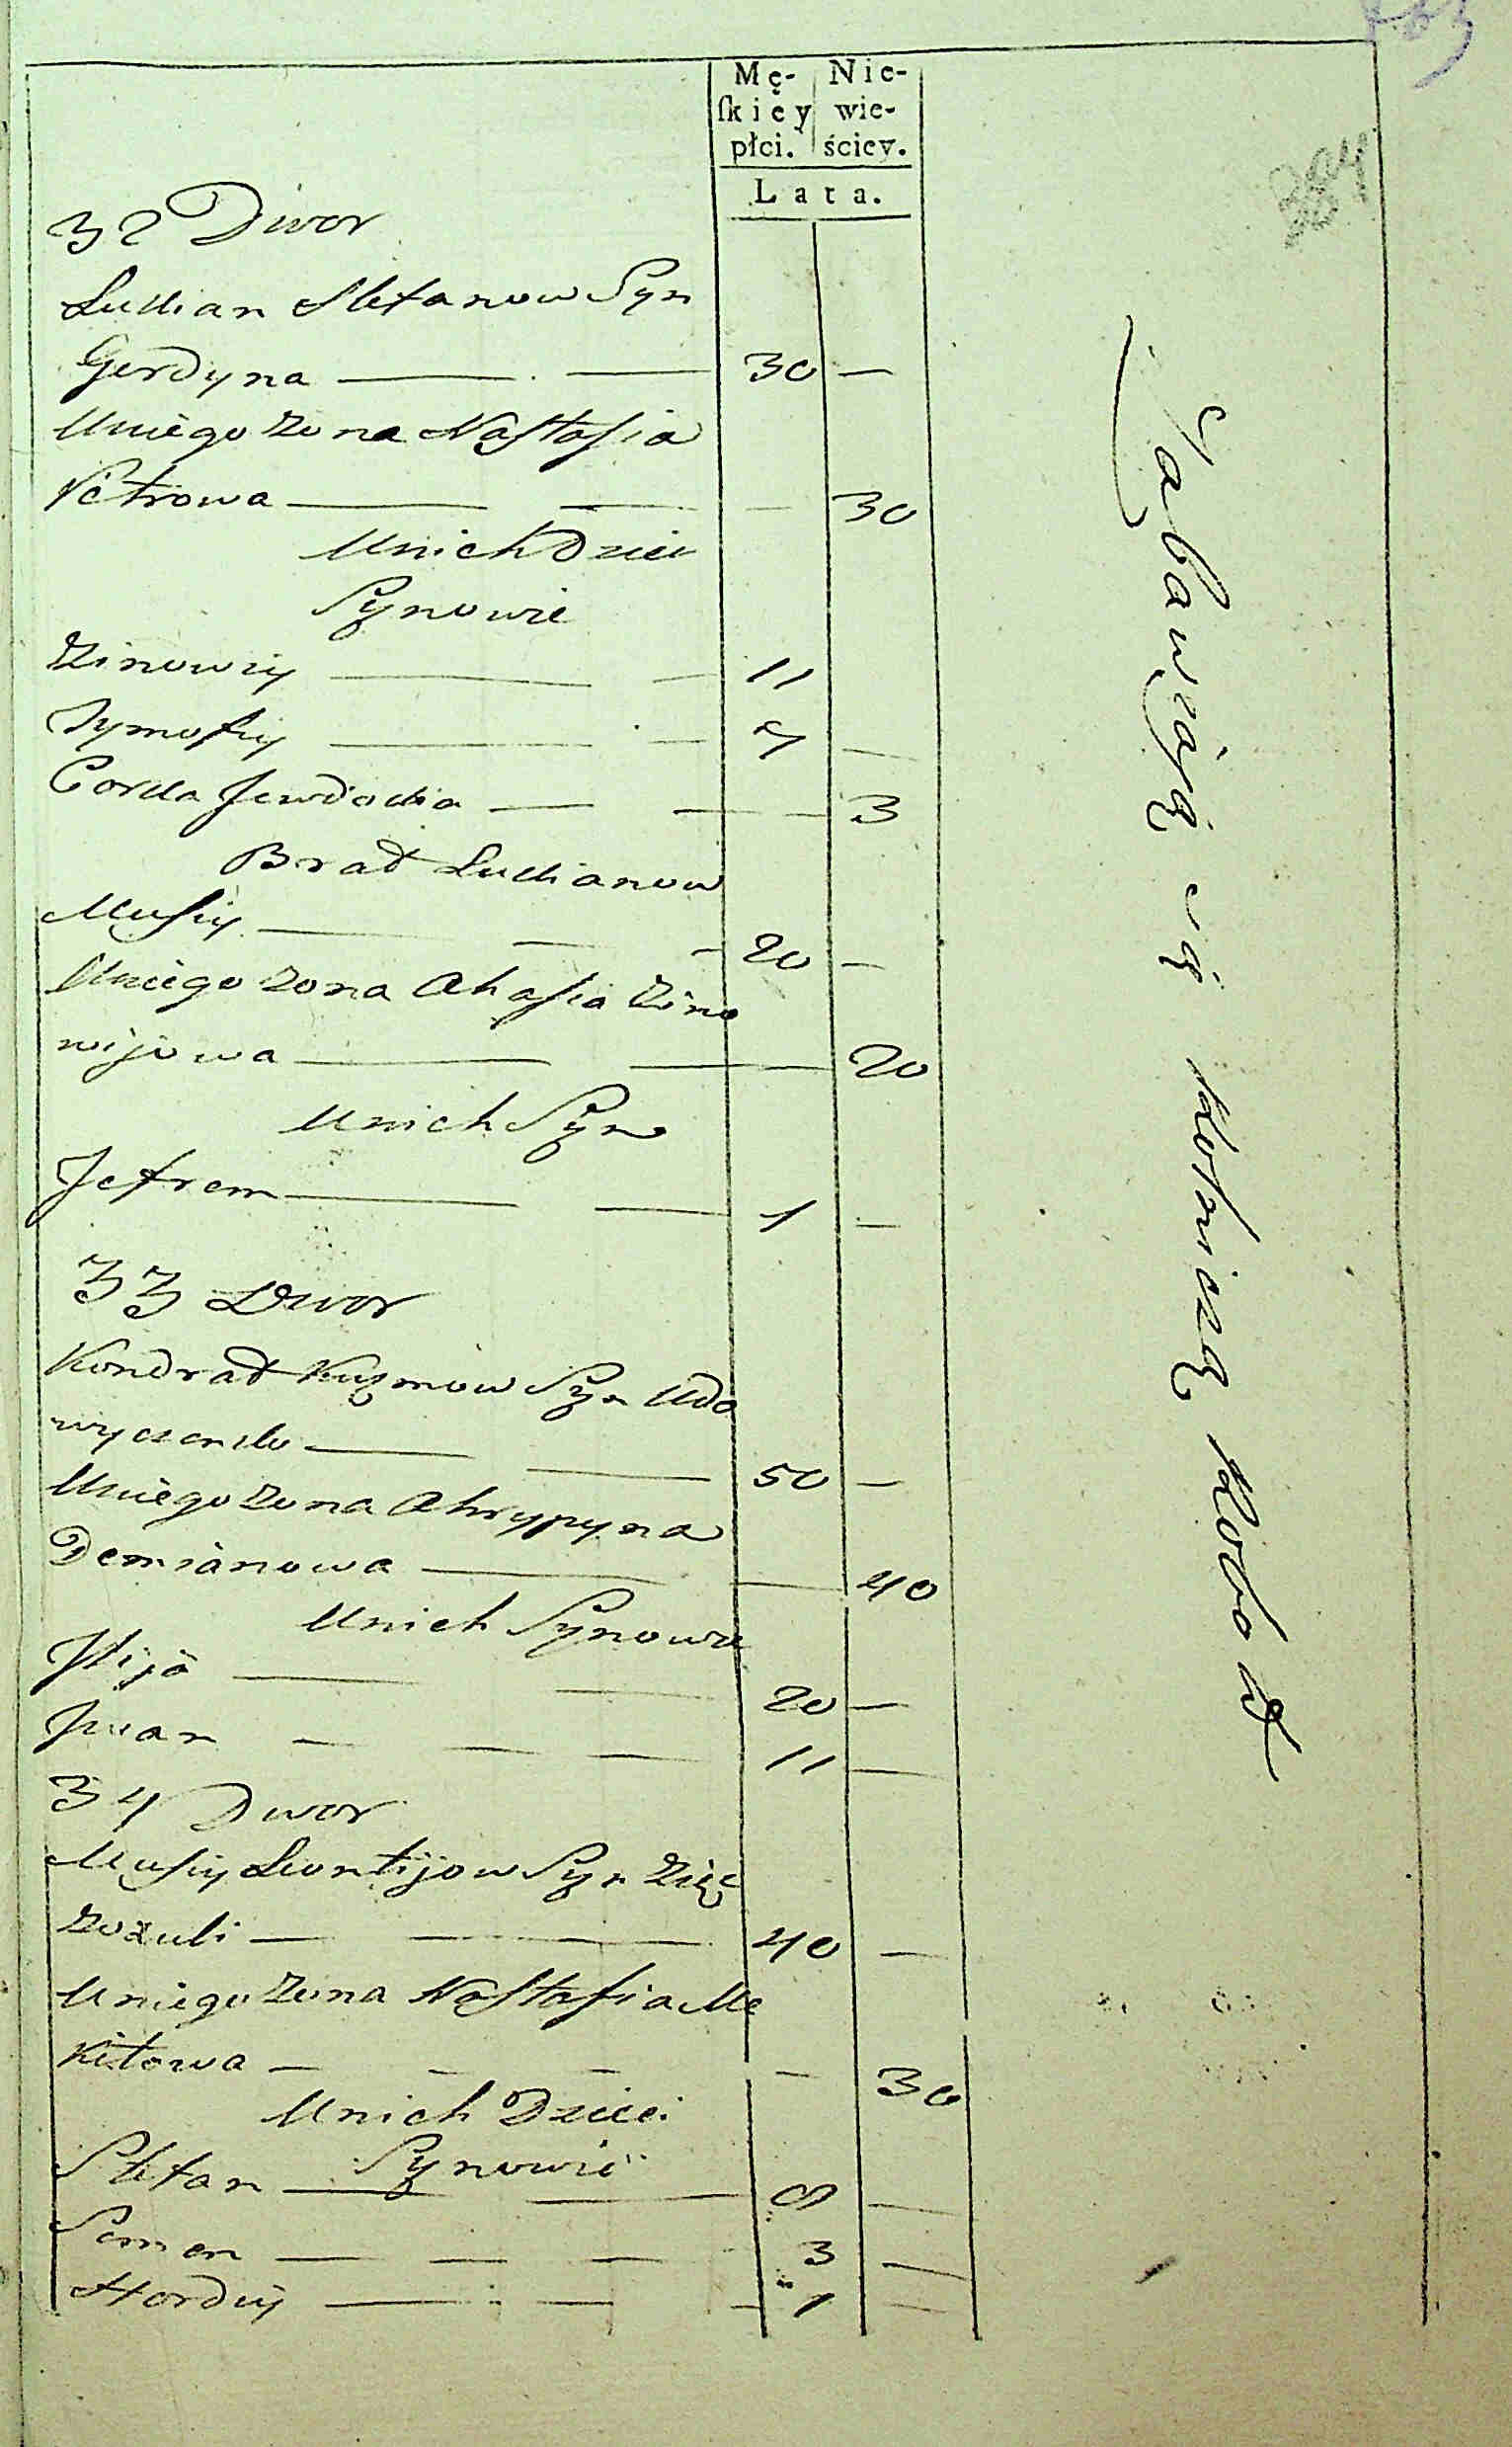 Mę- Nie-
ſkiey wie-
płci. ściey.
Lata.
32 Dwor
Lukian Stefanow Syn
Gerdyna — — 30 —
Uniego zona Nastasia
Petrowa — — — 30
Unich Dzieci
Synowie
Zinowiy — — 11
Tymofiy — — 7 —
Corka Jewdokia — — — 3
Brat Lukianow
Musiy — — — 20 —
Uniego zona Ahafia Zino
wijowa — — — 20
Unich Syn
Jefrem — — 1 —
33 Dwor
Kondrat Kuzmow Syn Udo
wyczenko — — 50 —
Uniego zona Ahrypyna
Demianowa — — 40
Unich Synowie
Ilija — — 20 —
Iwan — — — 11 —
34 Dwor
Musiy Leontijow Syn Zięć
Zozuli — — 40 —
Uniego zona Nastasia Me
kitowa — — — — 30
Unich Dzieci
Synowie
Stefan — — 8 —
Semen — — — 3 —
Hordiy — — — 1 —
Zabawiaią się Rolniczą Robotą